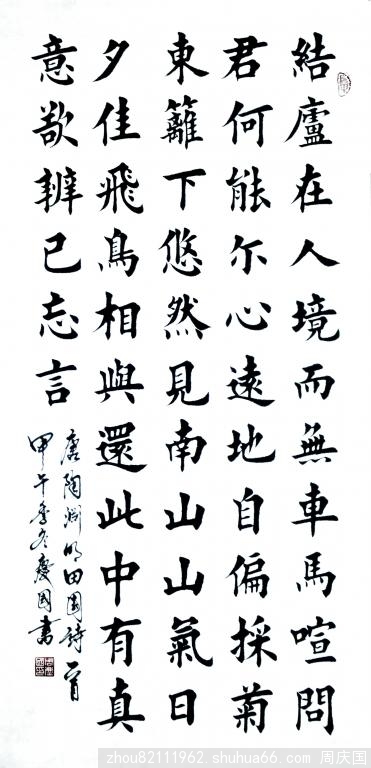 結廬在人境而無車馬喧問
君何能尔心遠地自偏採菊
東籬下悠然見南山山氣日
夕佳飛鳥相與還此中有真
意欲辨已忘言
唐陶渊明田園詩一首
甲午季冬慶國書
zhou82111962.shuhua66.com 周庆国